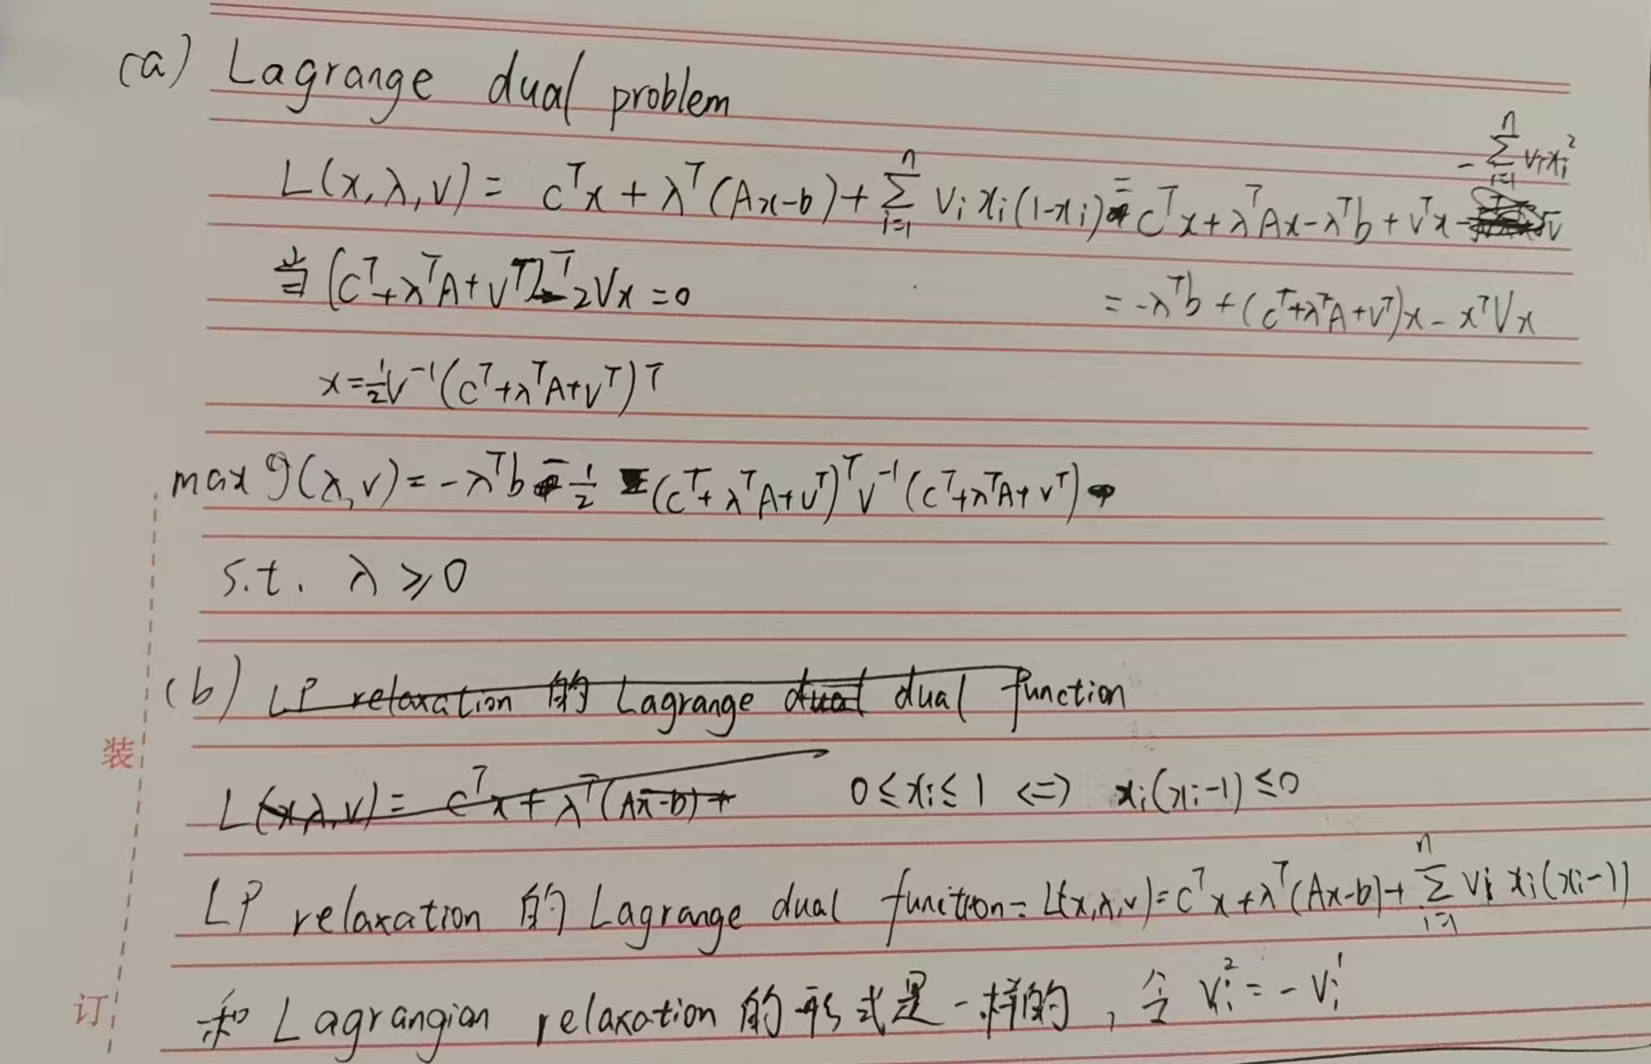 (a) Lagrange dual problem
L(x,λ,v) = cᵀx + λᵀ(Ax-b) + Σⁿᵢ₌₁ vᵢxᵢ(1-xᵢ) = cᵀx + λᵀAx - λᵀb + vᵀx - Σⁿᵢ₌₁ vᵢxᵢ²
= -λᵀb + (cᵀ+λᵀA+vᵀ)x - xᵀVx
当 (cᵀ+λᵀA+vᵀ)ᵀ - 2Vx = 0
x = ½V⁻¹(cᵀ+λᵀA+vᵀ)ᵀ
max g(λ,v) = -λᵀb - ½ (cᵀ+λᵀA+vᵀ)ᵀV⁻¹(cᵀ+λᵀA+vᵀ)
s.t. λ ≥ 0
(b) LP relaxation 的 Lagrange dual dual function
L(x,λ,v) = cᵀx + λᵀ(Ax-b) + 0 ≤ xᵢ ≤ 1 <=> xᵢ(xᵢ-1) ≤ 0
LP relaxation 的 Lagrange dual funition = L(x,λ,v) = cᵀx + λᵀ(Ax-b) + Σⁿᵢ₌₁ vᵢ xᵢ(xᵢ-1)
和 Lagrangian relaxation 的形式是一样的，令 vᵢ² = -vᵢ¹
装
订